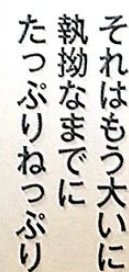 それはもう大いに
執拗なまでに
たっぷりねっぷり